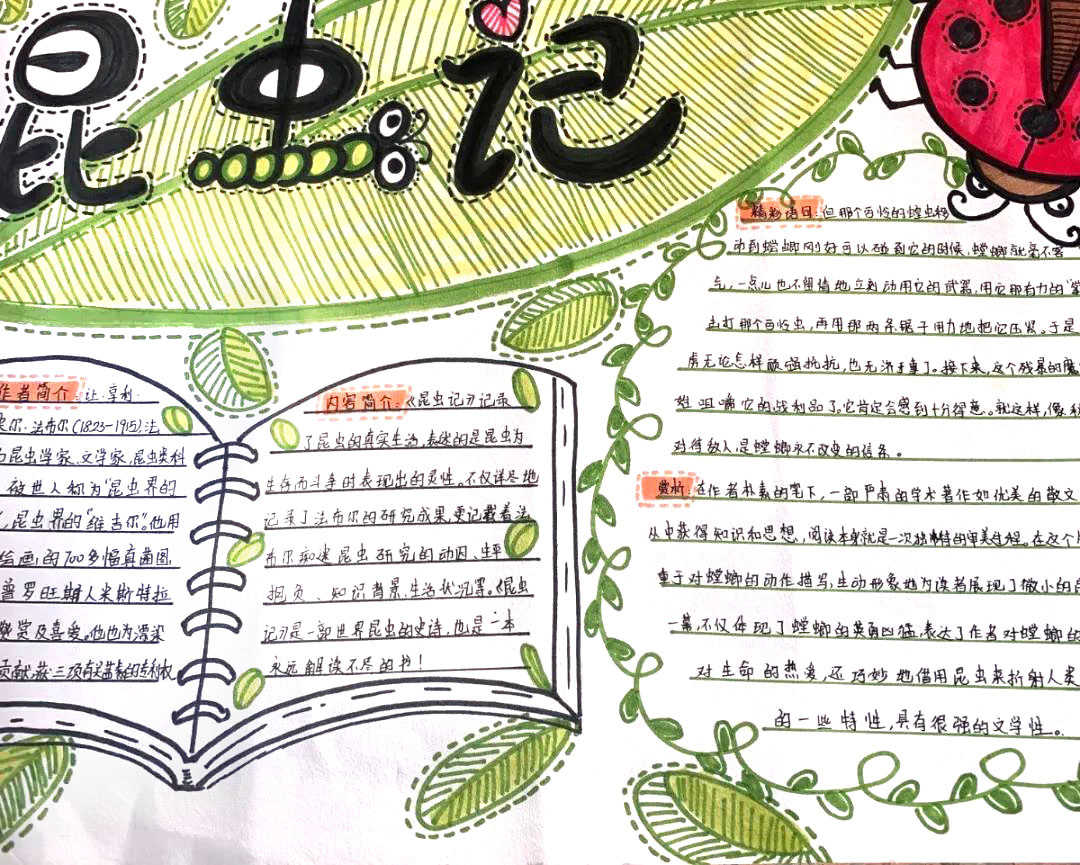 昆虫记
作者简介:让·亨利·
尔·法布尔(1823-1915)法
昆虫学家、文学家,昆虫类科
被世人称为"昆虫界的
,昆虫界的"维吉尔"。他用
绘画的700多幅真菌图
普罗旺斯人米斯特拉
赞赏及喜爱。他也为漂染
贡献,获三项有关茜素的专利权
内容简介:《昆虫记》记录
了昆虫的真实生活,表述的是昆虫为
生存而斗争时表现出的灵性。不仅详尽地
记录了法布尔的研究成果,更记载着法
布尔痴迷昆虫研究的动因、生平
抱负、知识背景、生活状况等。《昆虫
记》是一部世界昆虫的史诗,也是一本
永远解读不尽的书!
精彩语目:但那个可怜的蝗虫移
动到螳螂刚好可以碰到它的时候,螳螂就毫不客
气,一点儿也不留情地立刻动用它的武器,用它那有力的"掌
击打那个可怜虫,再用那两条锯子用力地把它压紧。于是
虏无论怎样顽强抵抗,也无济于事了。接下来,这个残暴的魔
咀嚼它的战利品了。它肯定会感到十分得意。就这样,像秋
对待敌人,是螳螂永不改变的信条。
赏析:在作者朴素的笔下,一部严肃的学术著作如优美的散文
从中获得知识和思想,阅读本身就是一次独特的审美过程。在这个片
重于对螳螂的动作描写,生动形象地为读者展现了微小的昆
一幕,不仅体现了螳螂的英勇凶猛,表达了作者对螳螂的
对生命的热爱,还巧妙地借用昆虫来折射人类
的一些特性,具有很强的文学性。